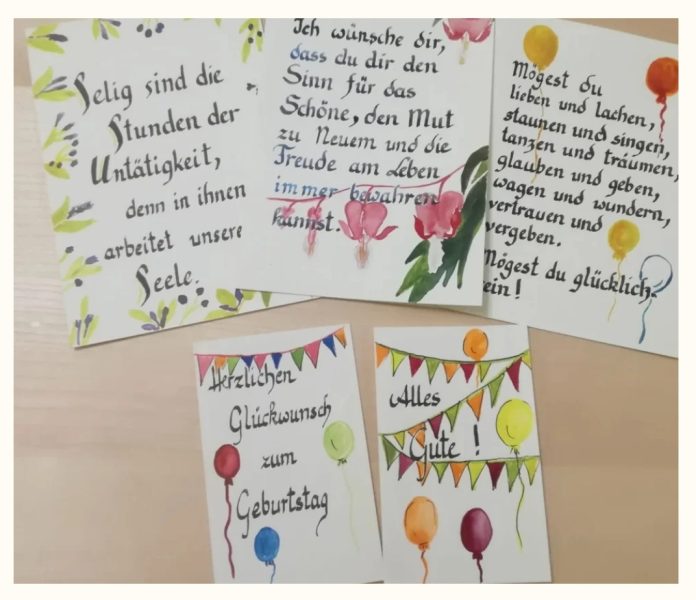 Selig sind die
Stunden der
Untätigkeit,
denn in ihnen
arbeitet unsere
Seele.
Ich wünsche dir,
dass du dir den
Sinn für das
Schöne, den Mut
zu Neuem und die
Freude am Leben
immer bewahren
kannst.
Mögest du
lieben und lachen,
staunen und singen,
tanzen und träumen,
glauben und geben,
wagen und wundern,
vertrauen und
vergeben.
Mögest du glücklich
sein!
Herzlichen
Glückwunsch
zum
Geburtstag
Alles
Gute!